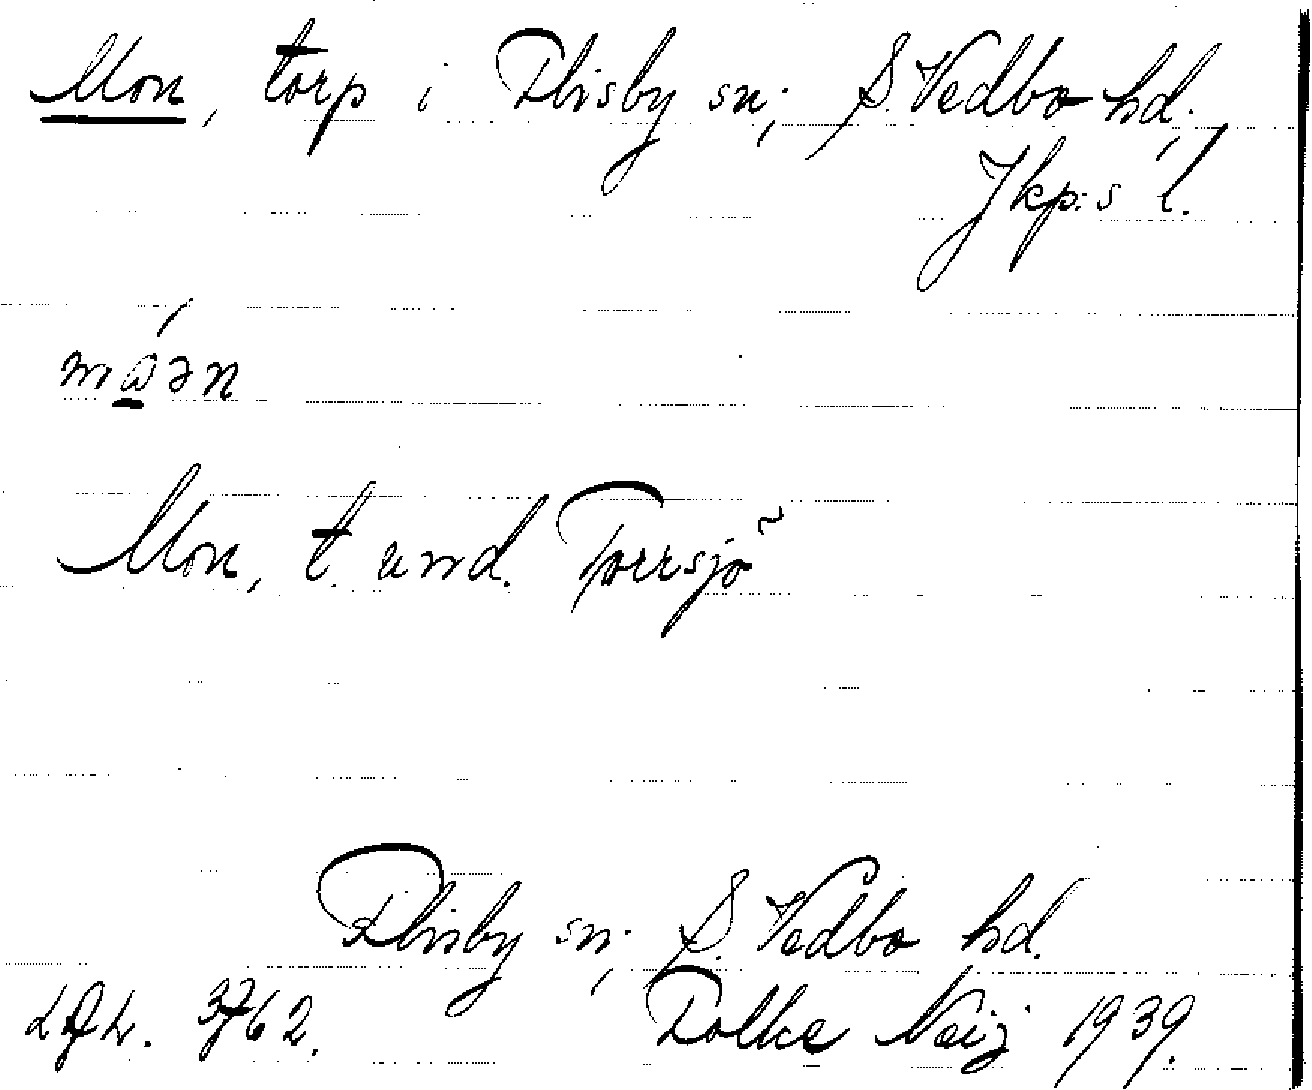 Mon, torp i Flisby sn; S. Vedbo hd;
Jkp:s l.
måən
Mon, t. und. Torrsjö
Flisby sn; S. Vedbo hd.
3762.
Folke Neij 1939.